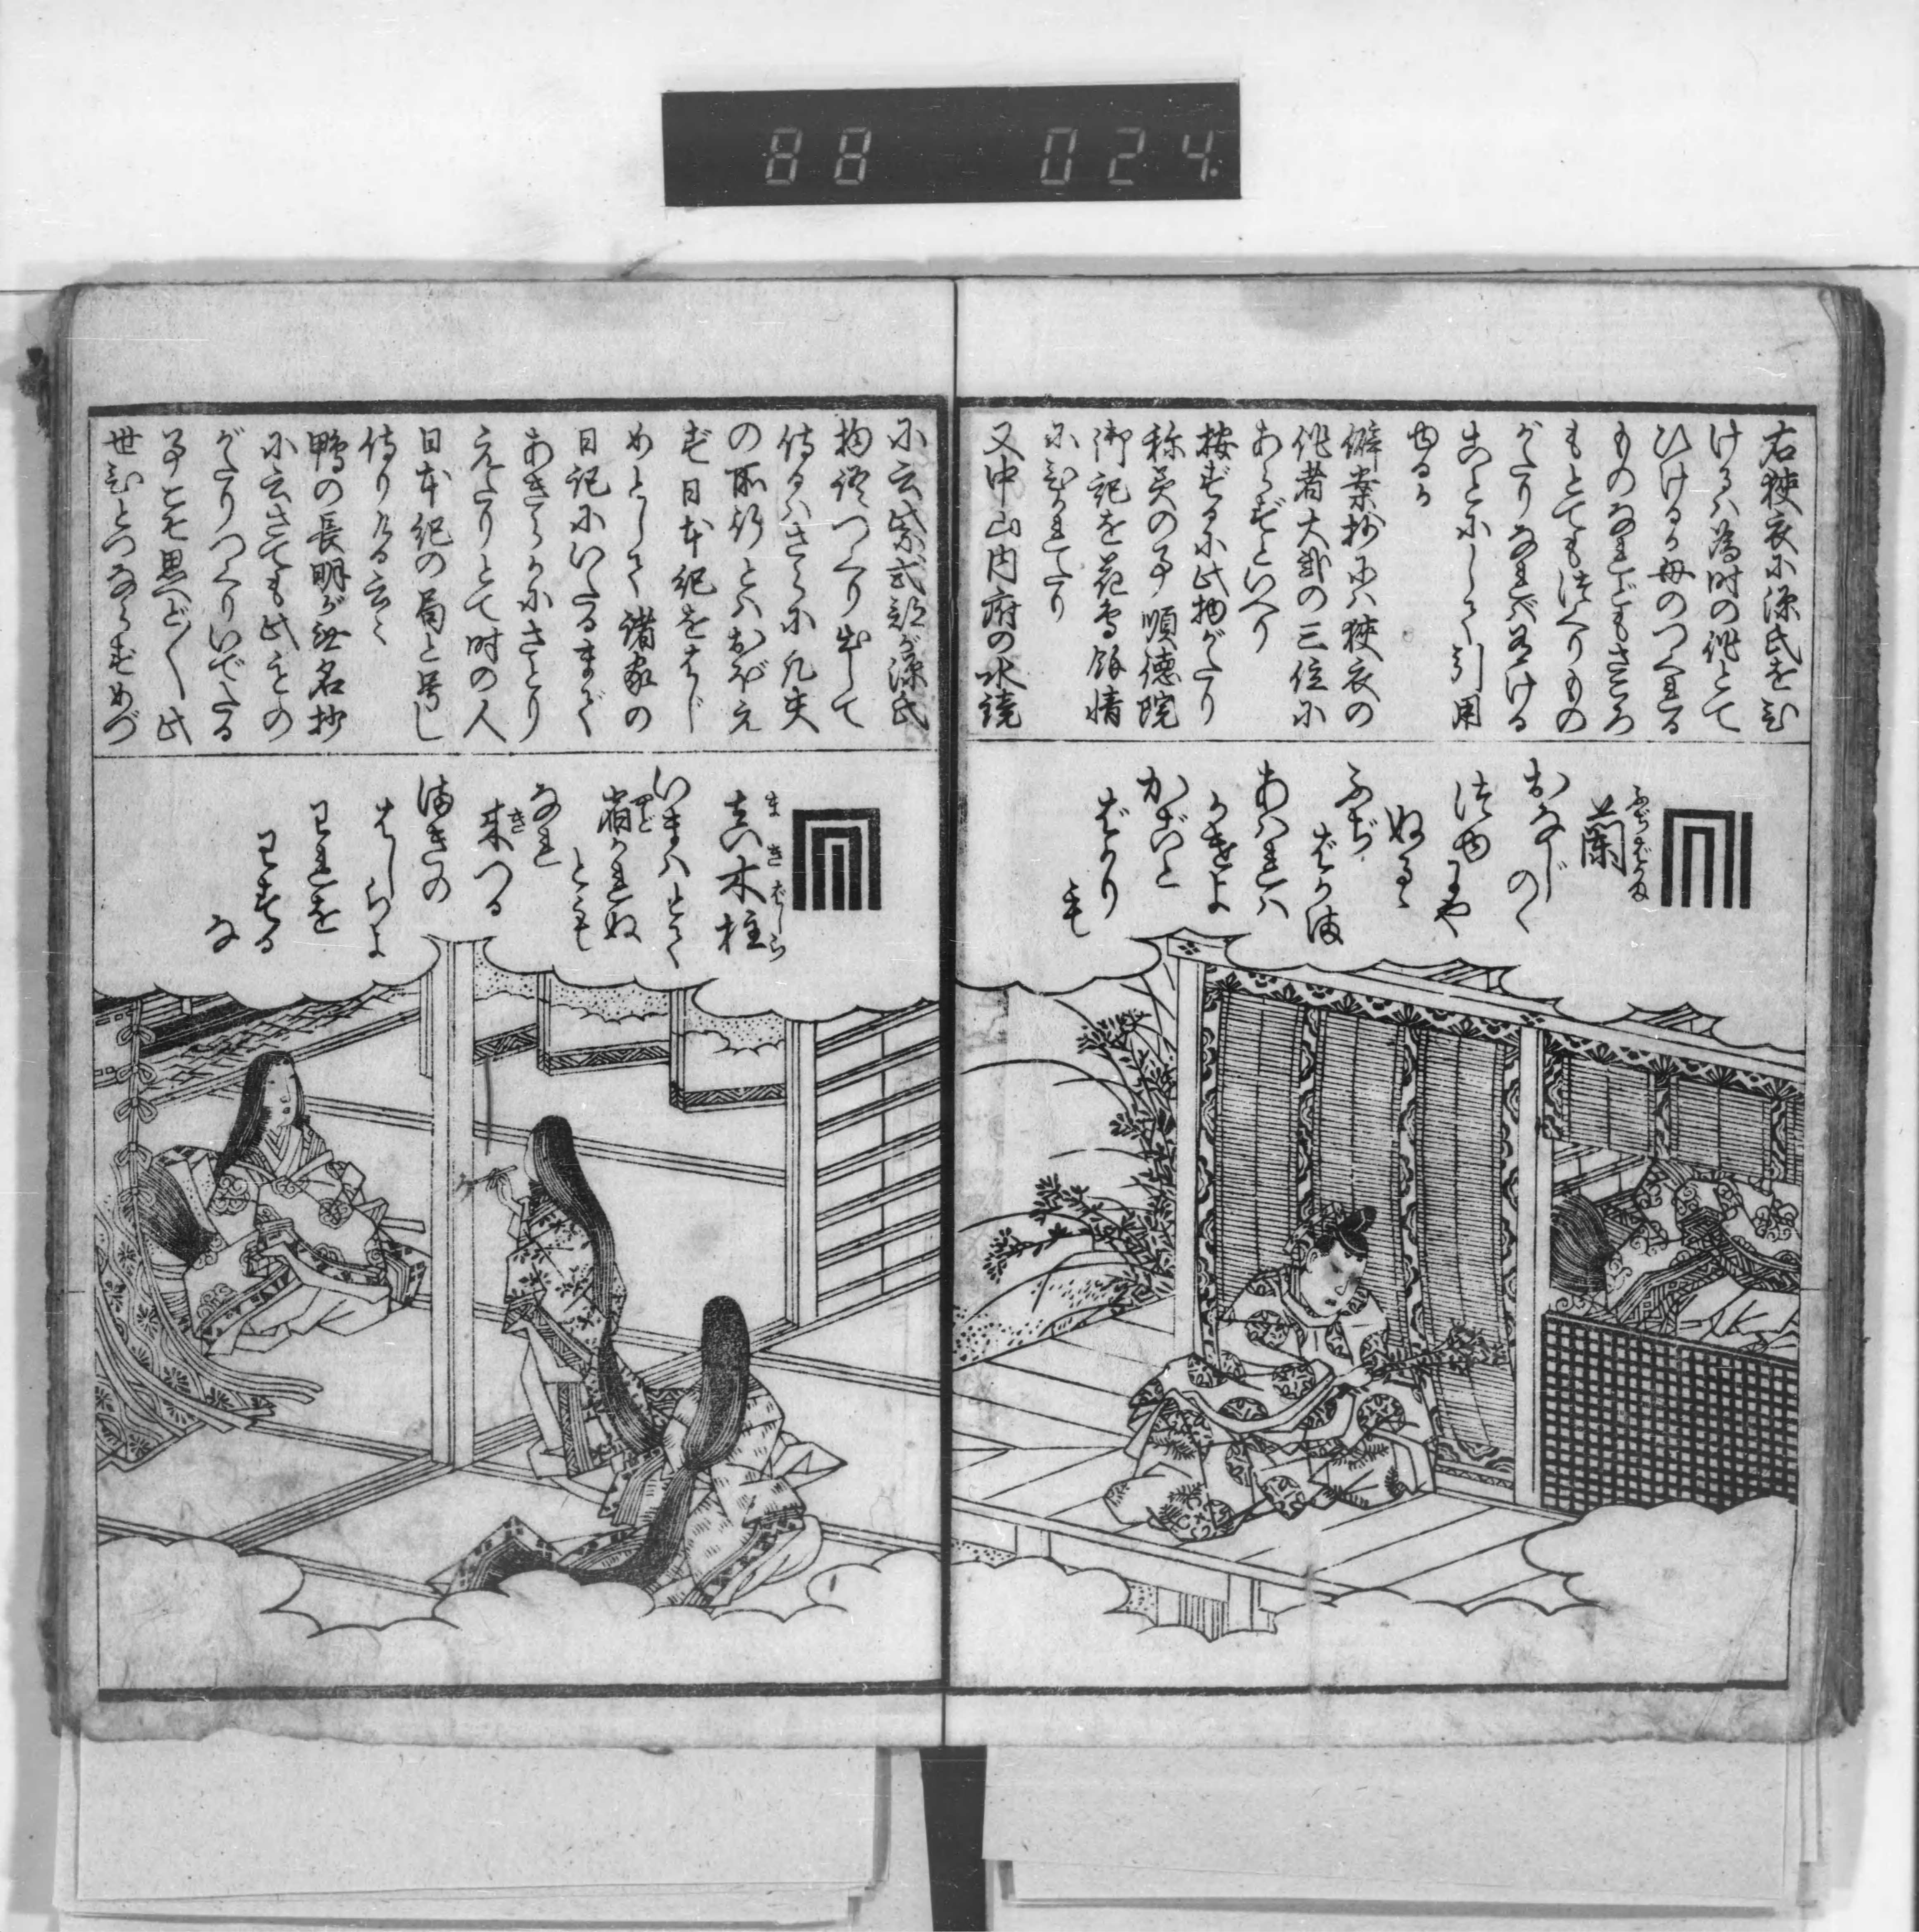 88 024
右狭衣に源氏をひ
けるハ為時の作とて
ひけるか母のつくれる
ものなれどもさころ
もとても後つくりもの
がたりなれバ名ける
ことにしるく引用
ゆるか
僻案抄にハ狭衣の
作者大弐の三位に
あらずといへり
按ずるに此物がたり
称美の事順徳院
御記を花鳥餘情
にひかれたり
又中山内府の水鏡
蘭
ふぢばかま
おなじのゝ
つゆにや
ぬるゝ
ふぢ
ばかま
あハれハ
かけよ
かごと
ばかり
も
に云紫式部が源氏
物語つくり出して
侍るハさらに凡夫
の所行とハおぼえ
ず日本紀をはじ
めとして諸家の
日記にいたるまで
あきらかにさとり
えたりとて時の人
日本紀の局と号し
侍りける云々
鴨の長明が無名抄
に云さても此もとの
がたりつくりいでたる
事こそ思へど〳〵此
世ひとつならずめづ
真木柱
まきばしら
いまハとて
宿かれぬ
やど
とも
なれ
来つる
き
まきの
はしらよ
われを
わする
な